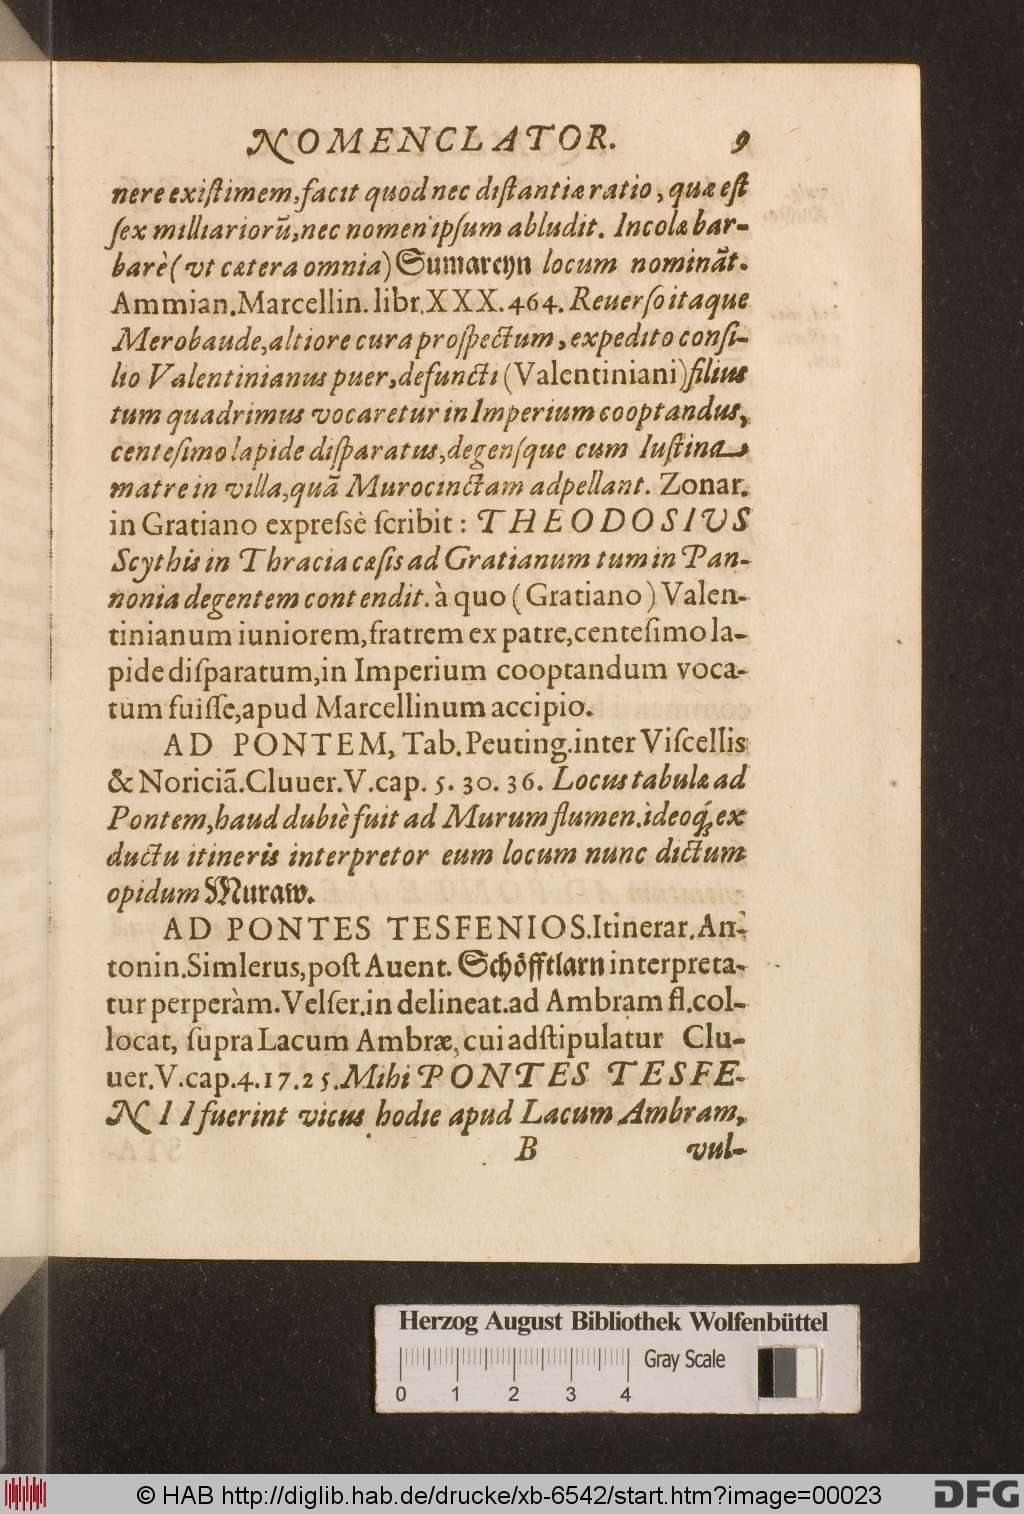 NOMENCLATOR. 9
nere exiſtimem, facit quod nec diſtantiæ ratio, quæ eſt
ſex milliariorũ, nec nomen ipſum abludit. Incolæ bar-
barè (vt cætera omnia) Sumareyn locum nominãt.
Ammian. Marcellin. libr. XXX. 464. Reuerſo itaque
Merobaude, altiore cura proſpectum, expedito conſi-
lio Valentinianus puer, defuncti (Valentiniani) filius
tum quadrimus vocaretur in Imperium cooptandus,
centeſimo lapide diſparatus, degenſque cum Iuſtina
matre in villa, quã Murocinctam adpellant. Zonar.
in Gratiano expreſsè ſcribit: THEODOSIVS
Scythis in Thracia cæſis ad Gratianum tum in Pan-
nonia degentem contendit. à quo (Gratiano) Valen-
tinianum iuniorem, fratrem ex patre, centeſimo la-
pide diſparatum, in Imperium cooptandum voca-
tum fuiſſe, apud Marcellinum accipio.
AD PONTEM, Tab. Peuting. inter Viſcellis
& Noriciã. Cluuer. V. cap. 5. 30. 36. Locus tabulæ ad
Pontem, haud dubiè fuit ad Murum flumen. ideoq́; ex
ductu itineris interpretor eum locum nunc dictum
opidum Muraw.
AD PONTES TESFENIOS. Itinerar. An-
tonin. Simlerus, poſt Auent. Schöfftlarn interpreta-
tur perperàm. Velſer. in delineat. ad Ambram fl. col-
locat, ſupra Lacum Ambræ, cui adſtipulatur Clu-
uer. V. cap. 4. 17. 25. Mihi PONTES TESFE-
NII fuerint vicus hodie apud Lacum Ambram,
B vul-
Herzog August Bibliothek Wolfenbüttel
Gray Scale
0 1 2 3 4
© HAB http://diglib.hab.de/drucke/xb-6542/start.htm?image=00023
DFG